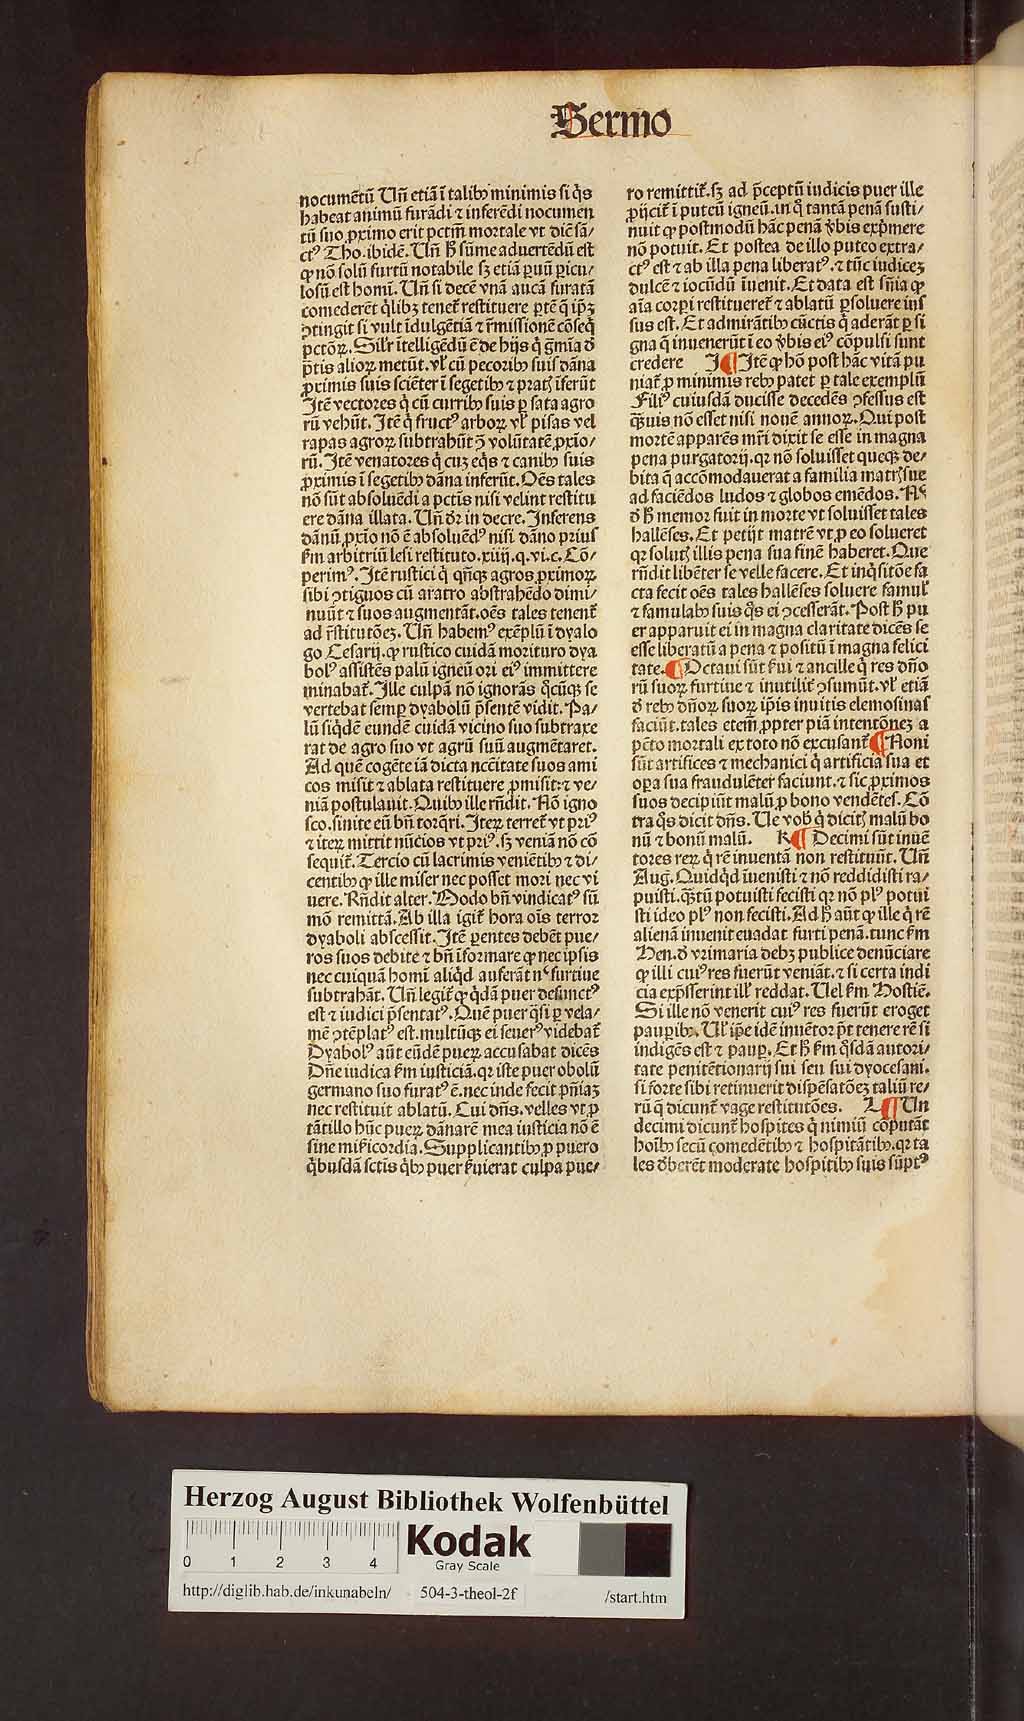 Sermo
nocumētū Uñ etiā ī talibꝫ minimis si q̇s
habeat animū furādi ⁊ inferēdi nocumen
tū suo ꝓximo erit pctm̄ mortale vt dic̄ sā/
ctꝰ Tho. ibidē. Uñ ħ sūme aduertēdū est
ꝙ nō solū furtū notabile sꝫ etiā ꝑuū ꝑicu/
losū est homī. Uñ si decē vnā aucā furatā
comederēt q̇libꝫ tenet̄ restituere ꝑtē q̄ ip̄ꝫ
ꝯtingit si vult īdulgētiā ⁊ r̄missionē cōseq̇
pctōꝝ. Silr̄ ītelligēdū ē de hijs q̇ gm̄ia ď
p̄tis alioꝝ metūt. vl̄ cū pecoribꝫ suis dāna
ꝓximis suis sciēter ī segetibꝫ ⁊ pratꝭ īferūt
Itē vectores q̇ cū curribꝫ suis ꝑ sata agro
rū vehūt. Itē q̇ fructꝰ arboꝝ vl̄ pisas vel
rapas agroꝝ subtrahūt ꝯ̄ volūtatē ꝓxīo/
rū. Itē venatores q̇ cuꝫ eq̇s ⁊ canibꝫ suis
ꝓximis ī segetibꝫ dāna inferūt. Oēs tales
nō sūt absoluēdi a pctīs nisi velint restitu
ere dāna illata. Uñ dr̄ in decre. Inferens
dānū ꝓxīo nō ē absoluēdꝰ nisi dāno prius
fm̄ arbitriū lesi restituto. xiiij. q. vi. c. Cō/
perimꝰ. Itē rustici q̇ qn̄qꝫ agros ꝓximoꝝ
sibi ꝯtiguos cū aratro abstrahēdo dimi/
nuūt ⁊ suos augmentāt. oēs tales tenent̄
ad r̄stitutōeꝫ. Uñ habemꝰ exēplū ī dyalo
go Cesarij. ꝙ rustico cuidā morituro dya
bolꝰ assistēs palū igneū ori eiꝰ immittere
minabat̄. Ille culpā nō ignorās q̇cūqꝫ se
vertebat semꝑ dyabolū p̄sentē vidit. Pa/
lū siq̇dē eundē cuidā vicino suo subtraxe
rat de agro suo vt agrū suū augmētaret.
Ad quē cogēte iā dicta ncc̄itate suos ami
cos misit ⁊ ablata restituere ꝓmisit: ⁊ ve/
niā postulauit. Quibꝫ ille rn̄dit. Nō igno
sco. sinite eū bn̄ torq̄ri. Iteꝝ terret̄ vt priꝰ
⁊ iteꝝ mittit nūcios vt priꝰ. sꝫ veniā nō cō
sequit̄. Tercio cū lacrimis veniētibꝫ ⁊ di/
centibꝫ ꝙ ille miser nec posset mori nec vi
uere. Rn̄dit alter. Modo bn̄ vindicatꝰ sū
mō remittā. Ab illa igit̄ hora ois̄ terror
dyaboli abscessit. Itē ꝑentes debēt pue/
ros suos debite ⁊ bn̄ īformare ꝙ nec ipsis
nec cuiquā homī aliq̇d auferāt nᶜ furtiue
subtrahāt. Uñ legit̄ ꝙ q̇dā puer defunctꝰ
est ⁊ iudici p̄sentatꝰ. Quē puer q̄si ꝑ vela/
mē ꝯtēplatꝰ est. multūqꝫ ei seuerꝰ videbat̄
Dyabolꝰ aūt eūdē pueꝝ accusabat dicēs
Dn̄e iudica fm̄ iusticiā. qꝛ iste puer obolū
germano suo furatꝰ ē. nec inde fecit pn̄iaꝫ
nec restituit ablatū. Cui dn̄s. velles vt ꝓ
tātillo hūc pueꝝ dānarē mea iusticia nō ē
sine mīcordia. Supplicantibꝫ ꝓ puero
q̇busdā sctīs q̇bꝫ puer ẜuierat culpa pue/
ro remittit̄. sꝫ ad p̄ceptū iudicis puer ille
ꝓijcit̄ ī puteū igneū. in q̇ tantā penā susti/
nuit ꝙ postmodū hāc penā v̇bis exp̄mere
nō potuit. Et postea de illo puteo extra/
ctꝰ est ⁊ ab illa pena liberatꝰ. ⁊ tūc iudiceꝫ
dulcē ⁊ iocūdū īuenit. Et data est sn̄ia ꝙ
aīa corꝑi restitueret̄ ⁊ ablatū ꝑsoluere ius
sus est. Et admirātibꝫ cūctis q̇ aderāt ꝑ si
gna q̄ inuenerūt ī eo v̇bis eiꝰ cōpulsi sunt
credere I ¶ Itē ꝙ hō post hāc vitā pu
niat̄ ꝓ minimis rebꝫ patet ꝑ tale exemplū
Filiꝰ cuiusdā ducisse decedēs ꝯfessus est
q̄uis nō esset nisi nouē annoꝝ. Qui post
mortē apparēs mr̄i dixit se esse in magna
pena purgatorij. qꝛ nō soluisset queqꝫ de/
bita q̄ accōmodauerat a familia matrꝭ sue
ad faciēdos ludos ⁊ globos emēdos. Nᶜ
ď ħ memor fuit in morte vt soluisset tales
hallēses. Et petijt matrē vt ꝓ eo solueret
qꝛ solutꝭ illis pena sua finē haberet. Que
rn̄dit libēter se velle facere. Et inq̇sitōe fa
cta fecit oēs tales hallēses soluere famul̄
⁊ famulabꝫ suis q̇s ei ꝯcesserāt. Post ħ pu
er apparuit ei in magna claritate dicēs se
esse liberatū a pena ⁊ positū ī magna felici
tate. ¶ Octaui sūt ẜui ⁊ ancille q̇ res dn̄o
rū suoꝝ furtiue ⁊ inutilit̄ ꝯsumūt. vl̄ etiā
ď rebꝫ dn̄oꝝ suoꝝ ip̄is inuitis elemosinas
faciūt. tales etem̄ ꝓpter piā intentōneꝫ a
pctō mortali ex toto nō excusant̄ ¶ Noni
sūt artifices ⁊ mechanici q̇ artificia sua et
oꝑa sua fraudulēter faciunt. ⁊ sic ꝓximos
suos decipiūt malū ꝓ bono vendētes. Cō
tra q̇s dicit dn̄s. Ue vob̄ q̇ dicitꝭ malū bo
nū ⁊ bonū malū. K ¶ Decimi sūt inuē
tores reꝝ q̇ rē inuentā non restituūt. Uñ
Aug. Quidq̇d īuenisti ⁊ nō reddidisti ra/
puisti. q̄ꝫtū potuisti fecisti qꝛ nō plꝰ potui
sti ideo plꝰ non fecisti. Ad ħ aūt ꝙ ille q̇ rē
alienā inuenit euadat furti penā. tunc fm̄
Hen. ď vrimaria debꝫ publice denūciare
ꝙ illi cuiꝰ res fuerūt veniāt. ⁊ si certa indi
cia exp̄sserint ill̄ reddat. Uel fm̄ Hostiē.
Si ille nō venerit cuiꝰ res fuerūt eroget
pauꝑibꝫ. Ul̄ ip̄e idē inuētor p̄t tenere rē si
indigēs est ⁊ pauꝑ. Et ħ fm̄ q̇sdā autori/
tate penitētionarij sui seu sui dyocesani.
si forte sibi retinuerit dispēsatōeꝫ taliū re/
rū q̄ dicunt̄ vage restitutōes. L ¶ Un
decimi dicunt̄ hospites q̇ nimiū cōputāt
hoībꝫ secū comedētibꝫ ⁊ hospitātibꝫ. qꝛ ta
les ďberēt moderate hospitibꝫ suis sūptꝰ
Herzog August Bibliothek Wolfenbüttel
0 1 2 3 4
Kodak
Gray Scale
http://diglib.hab.de/inkunabeln/ 504-3-theol-2f /start.htm